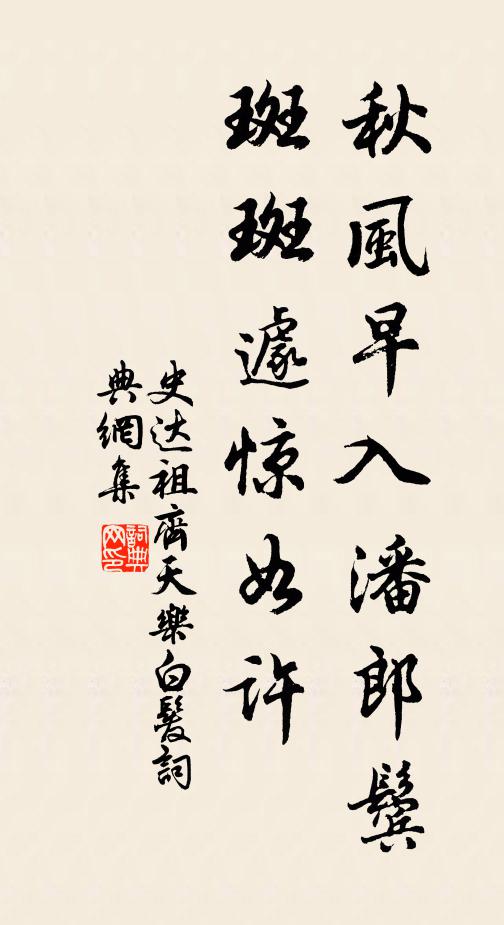 秋風早入潘郎鬓
斑斑遽惊如许
史达祖齊天樂白髮詞
典網集
詞典網印